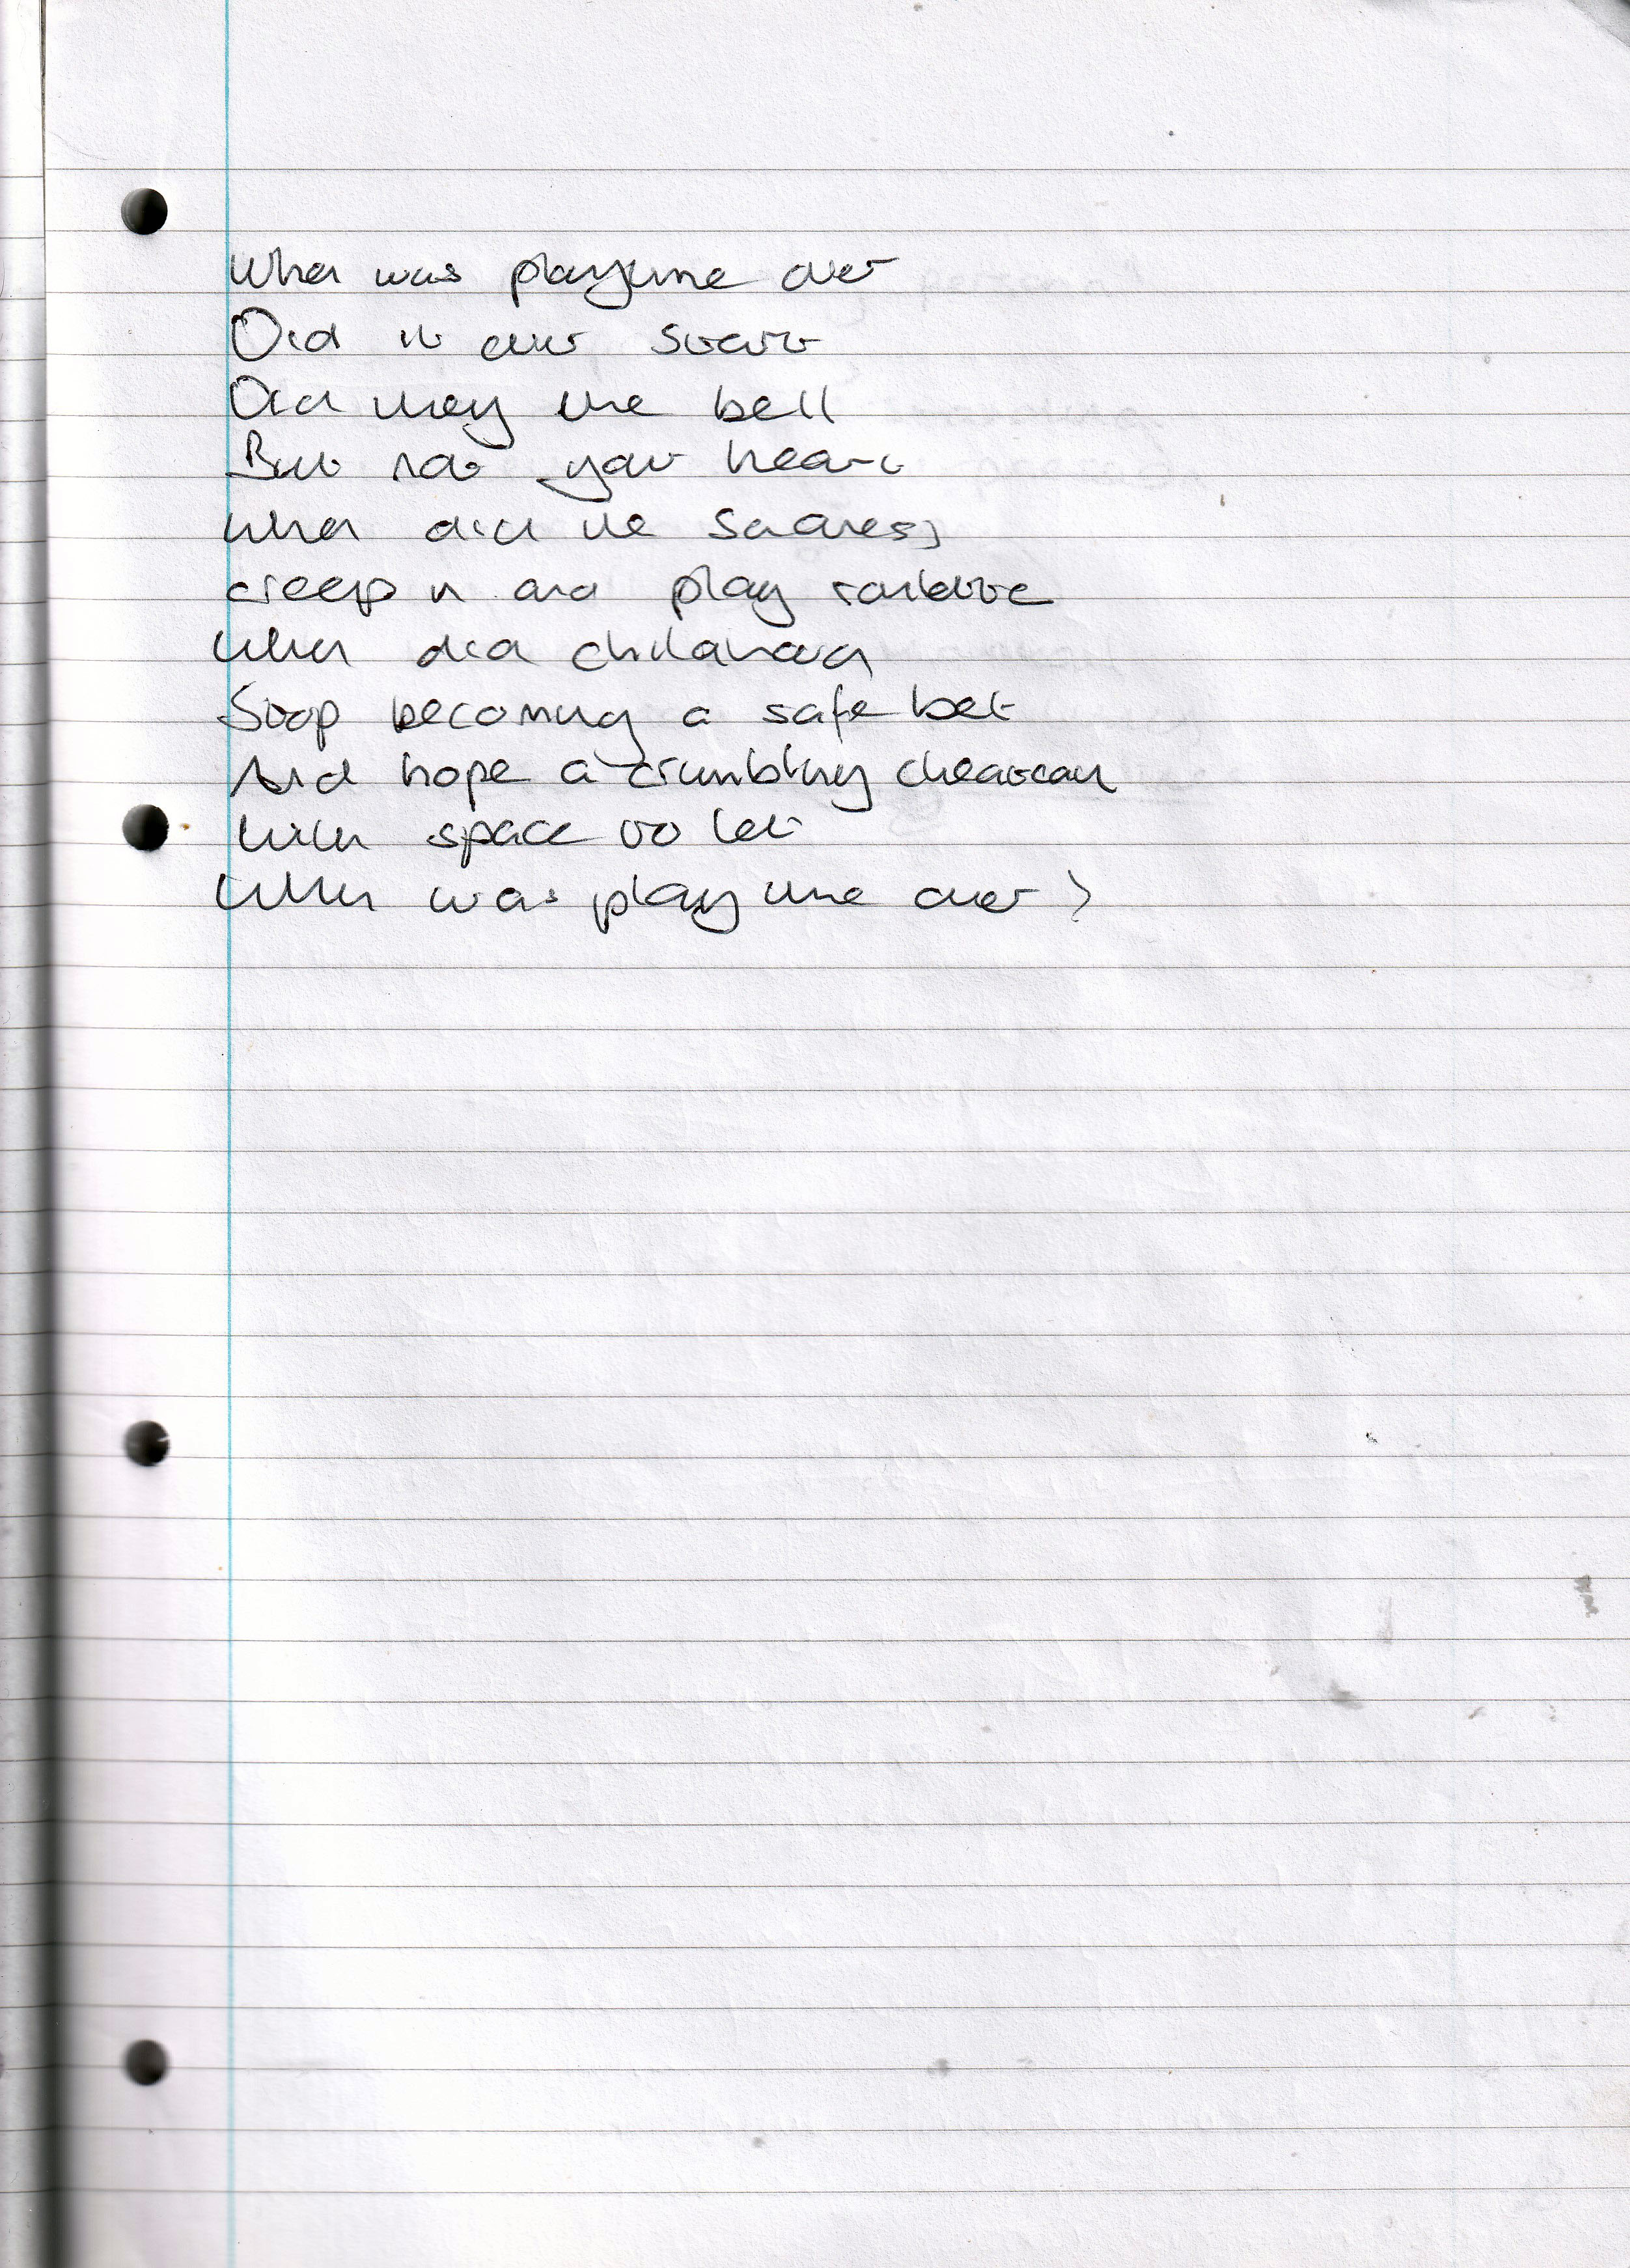 When was playtime over
Did it ever start
Did they the bell
But not your heart
When did the sadness
creep in and play roulette
When did childhood
Stop becoming a safe bet
And hope a crumbling
With space to let
When was playtime over?